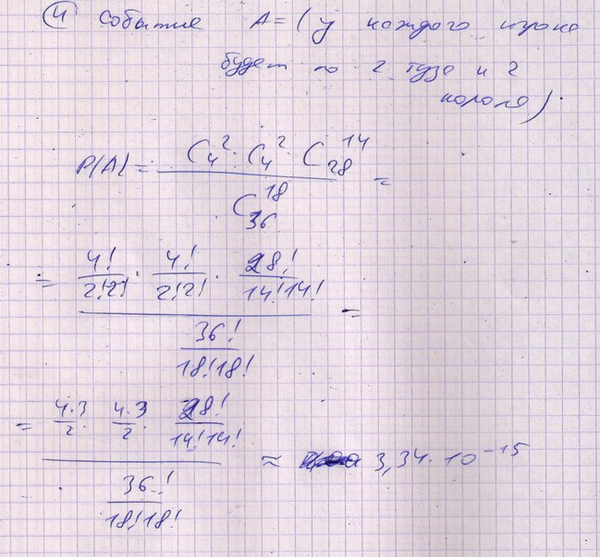 ④ Событие A = (у каждого игрока
будет по 2 туза и 2
короля).
P(A) = (C₄² · C₄² · C₂₈¹⁴) / C₃₆¹⁸ =
= (4!/(2!2!) · 4!/(2!2!) · 28!/(14!14!)) / (36!/(18!18!)) =
= (4·3/2 · 4·3/2 · 28!/(14!14!)) / (36!/(18!18!)) ≈ 3,34·10⁻¹⁵